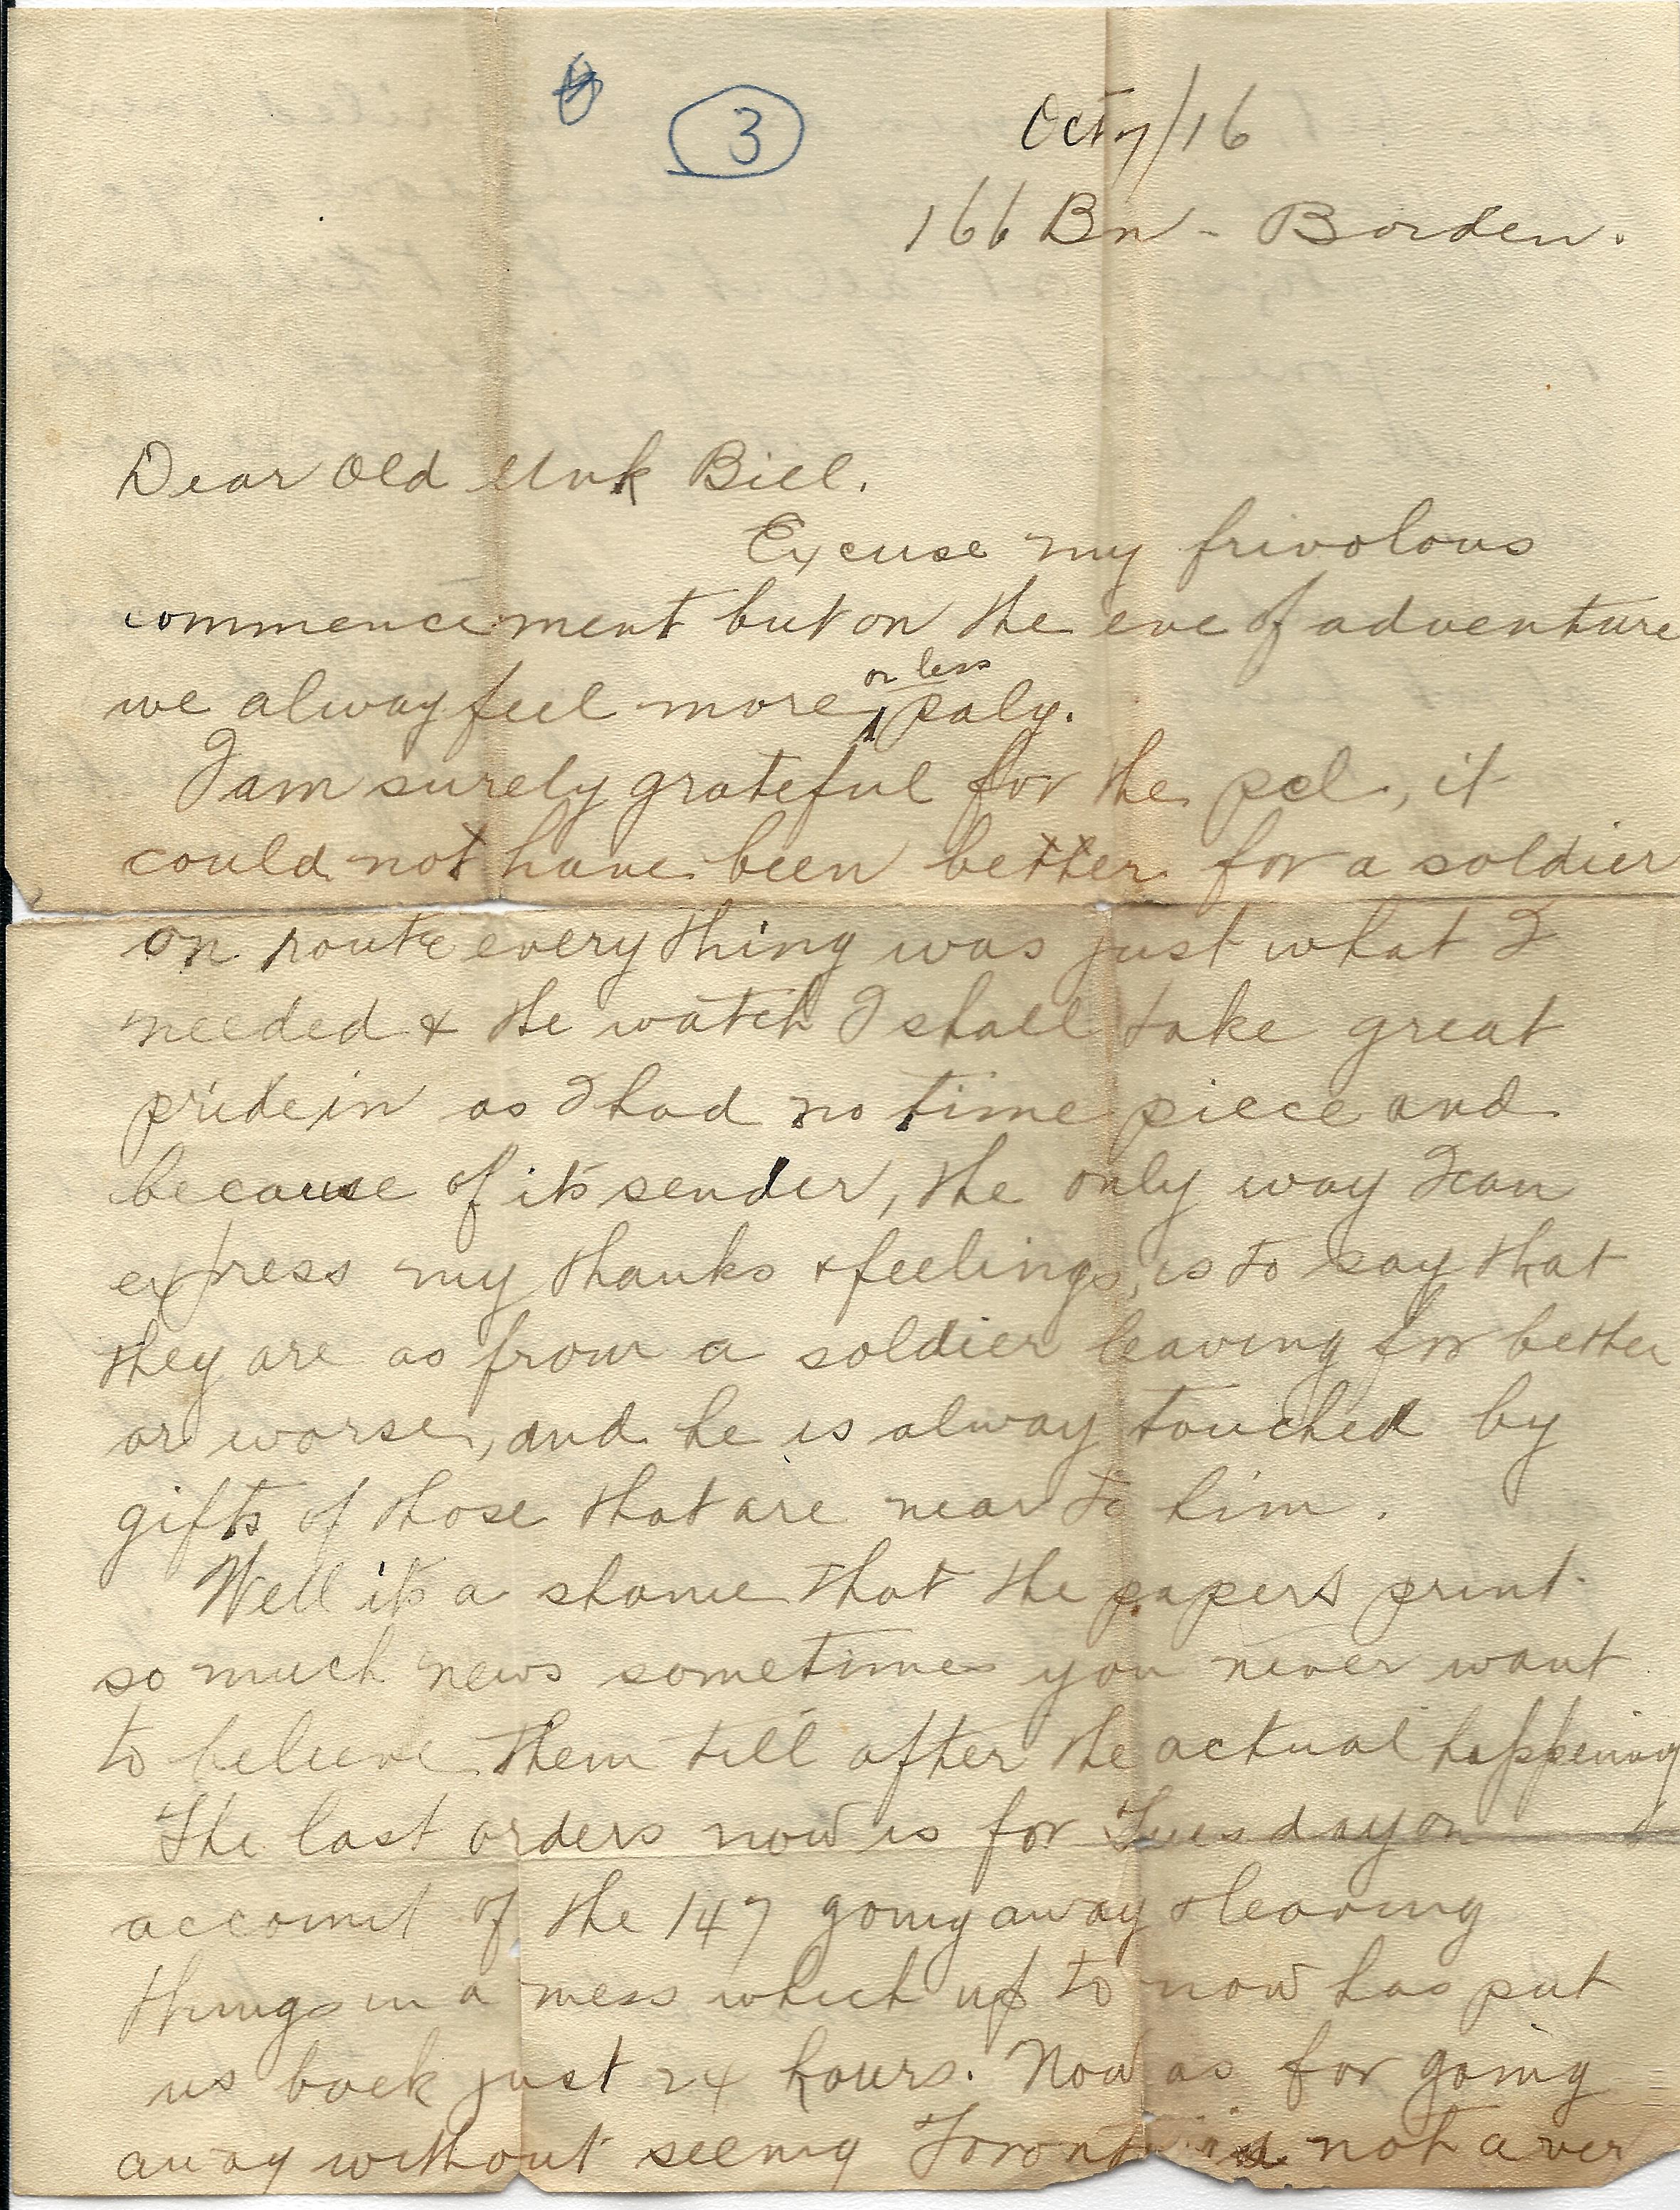 3
Oct 7/16
166 Bn - Borden.
Dear Old Unk Bill.
Excuse my frivolous
commencement but on the eve of adventure
we alway feel more or less paly.
I am surely grateful for the pcl, it
could not have been better for a soldier
on route everything was just what I
needed & the watch I shall take great
pride in as I had no time piece and
because of its sender, the only way I can
express my thanks & feelings, is to say that
they are as from a soldier leaving for better
or worse, and he is alway touched by
gifts of those that are near to him.
Well its a shame that the papers print
so much news sometimes you never want
to believe them till after the actual happening
The last orders now is for Tuesday on
account of the 147 going away & leaving
things in a mess which up to now has put
us back just 24 hours. Now as for going
away without seeing Toronto is not a ver